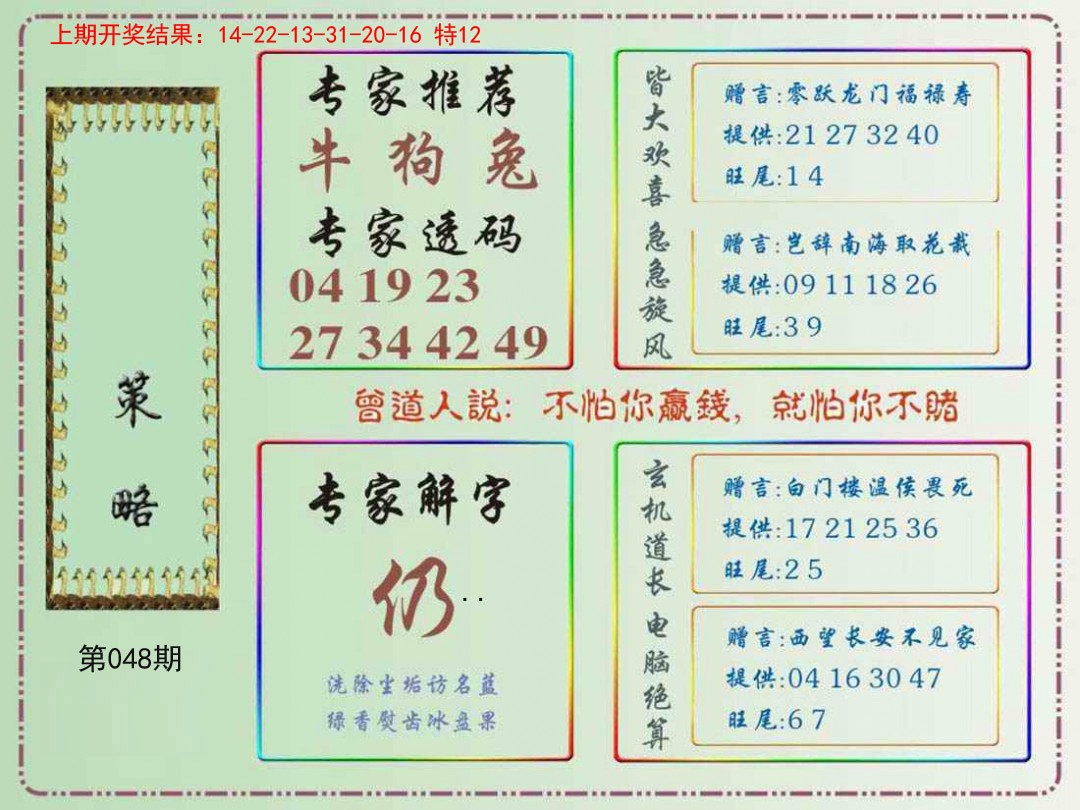 上期开奖结果：14-22-13-31-20-16 特12
策略
第048期
专家推荐
牛 狗 兔
专家透码
04 19 23
27 34 42 49
皆大欢喜
赠言:零跃龙门福禄寿
提供:21 27 32 40
旺尾:1 4
急急旋风
赠言:岂辞南海取花栽
提供:09 11 18 26
旺尾:3 9
曾道人説：不怕你赢錢，就怕你不賭
专家解字
仍..
洗除尘垢访名蓝
绿香熨齿冰盘果
玄机道长
赠言:白门楼温侯畏死
提供:17 21 25 36
旺尾:2 5
电脑绝算
赠言:西望长安不见家
提供:04 16 30 47
旺尾:6 7